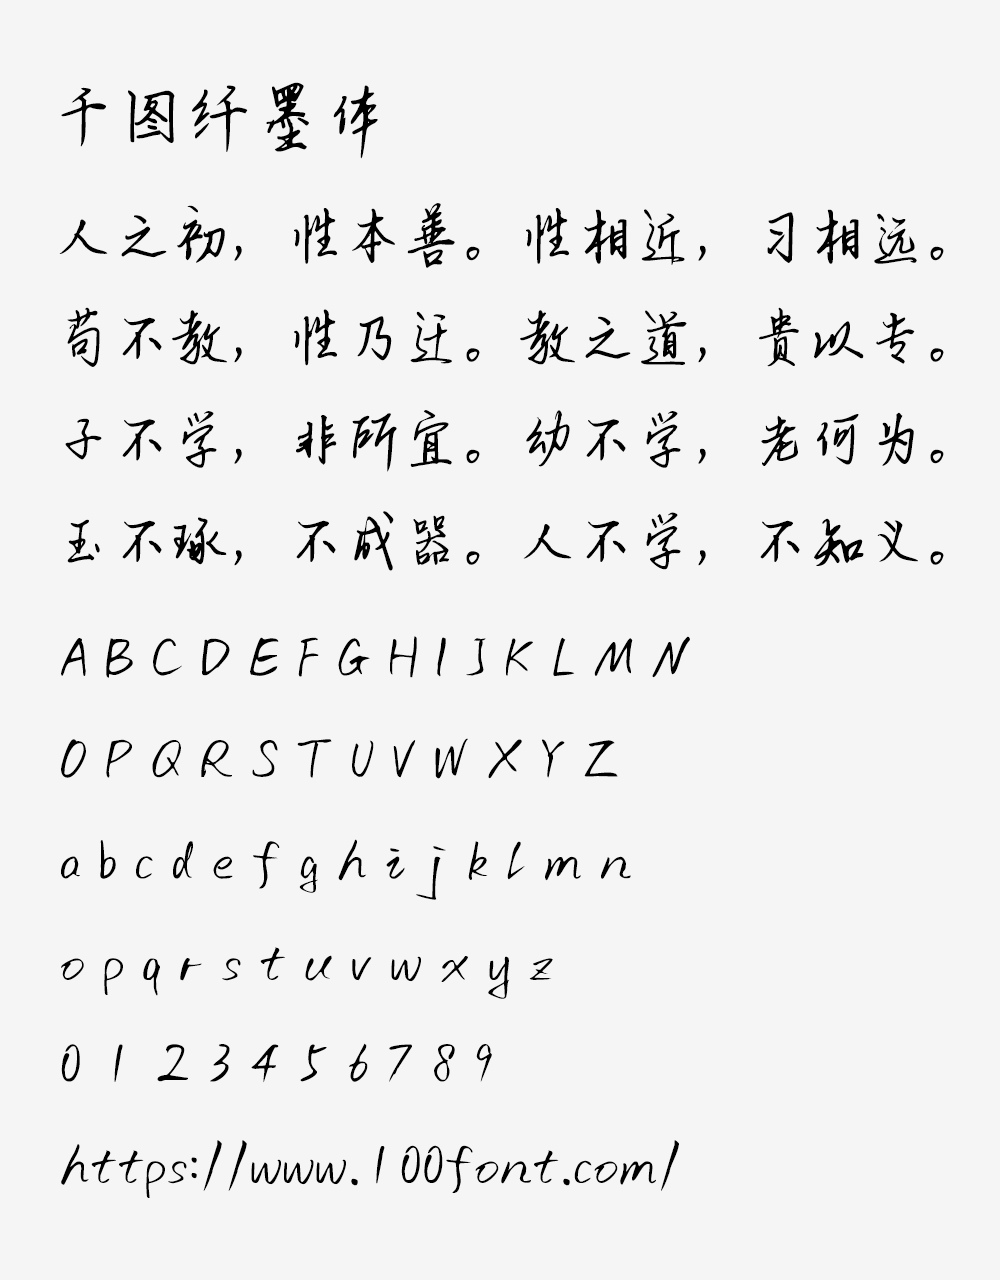 千图纤墨体
人之初，性本善。性相近，习相远。
苟不教，性乃迁。教之道，贵以专。
子不学，非所宜。幼不学，老何为。
玉不琢，不成器。人不学，不知义。
A B C D E F G H I J K L M N
O P Q R S T U V W X Y Z
a b c d e f g h i j k l m n
o p q r s t u v w x y z
0 1 2 3 4 5 6 7 8 9
https://www.100font.com/